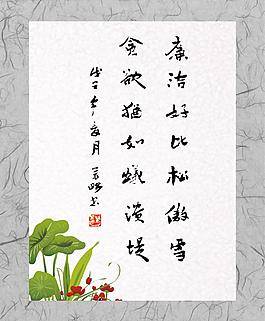 廉洁好比松傲雪
贪欲犹如蚁溃堤